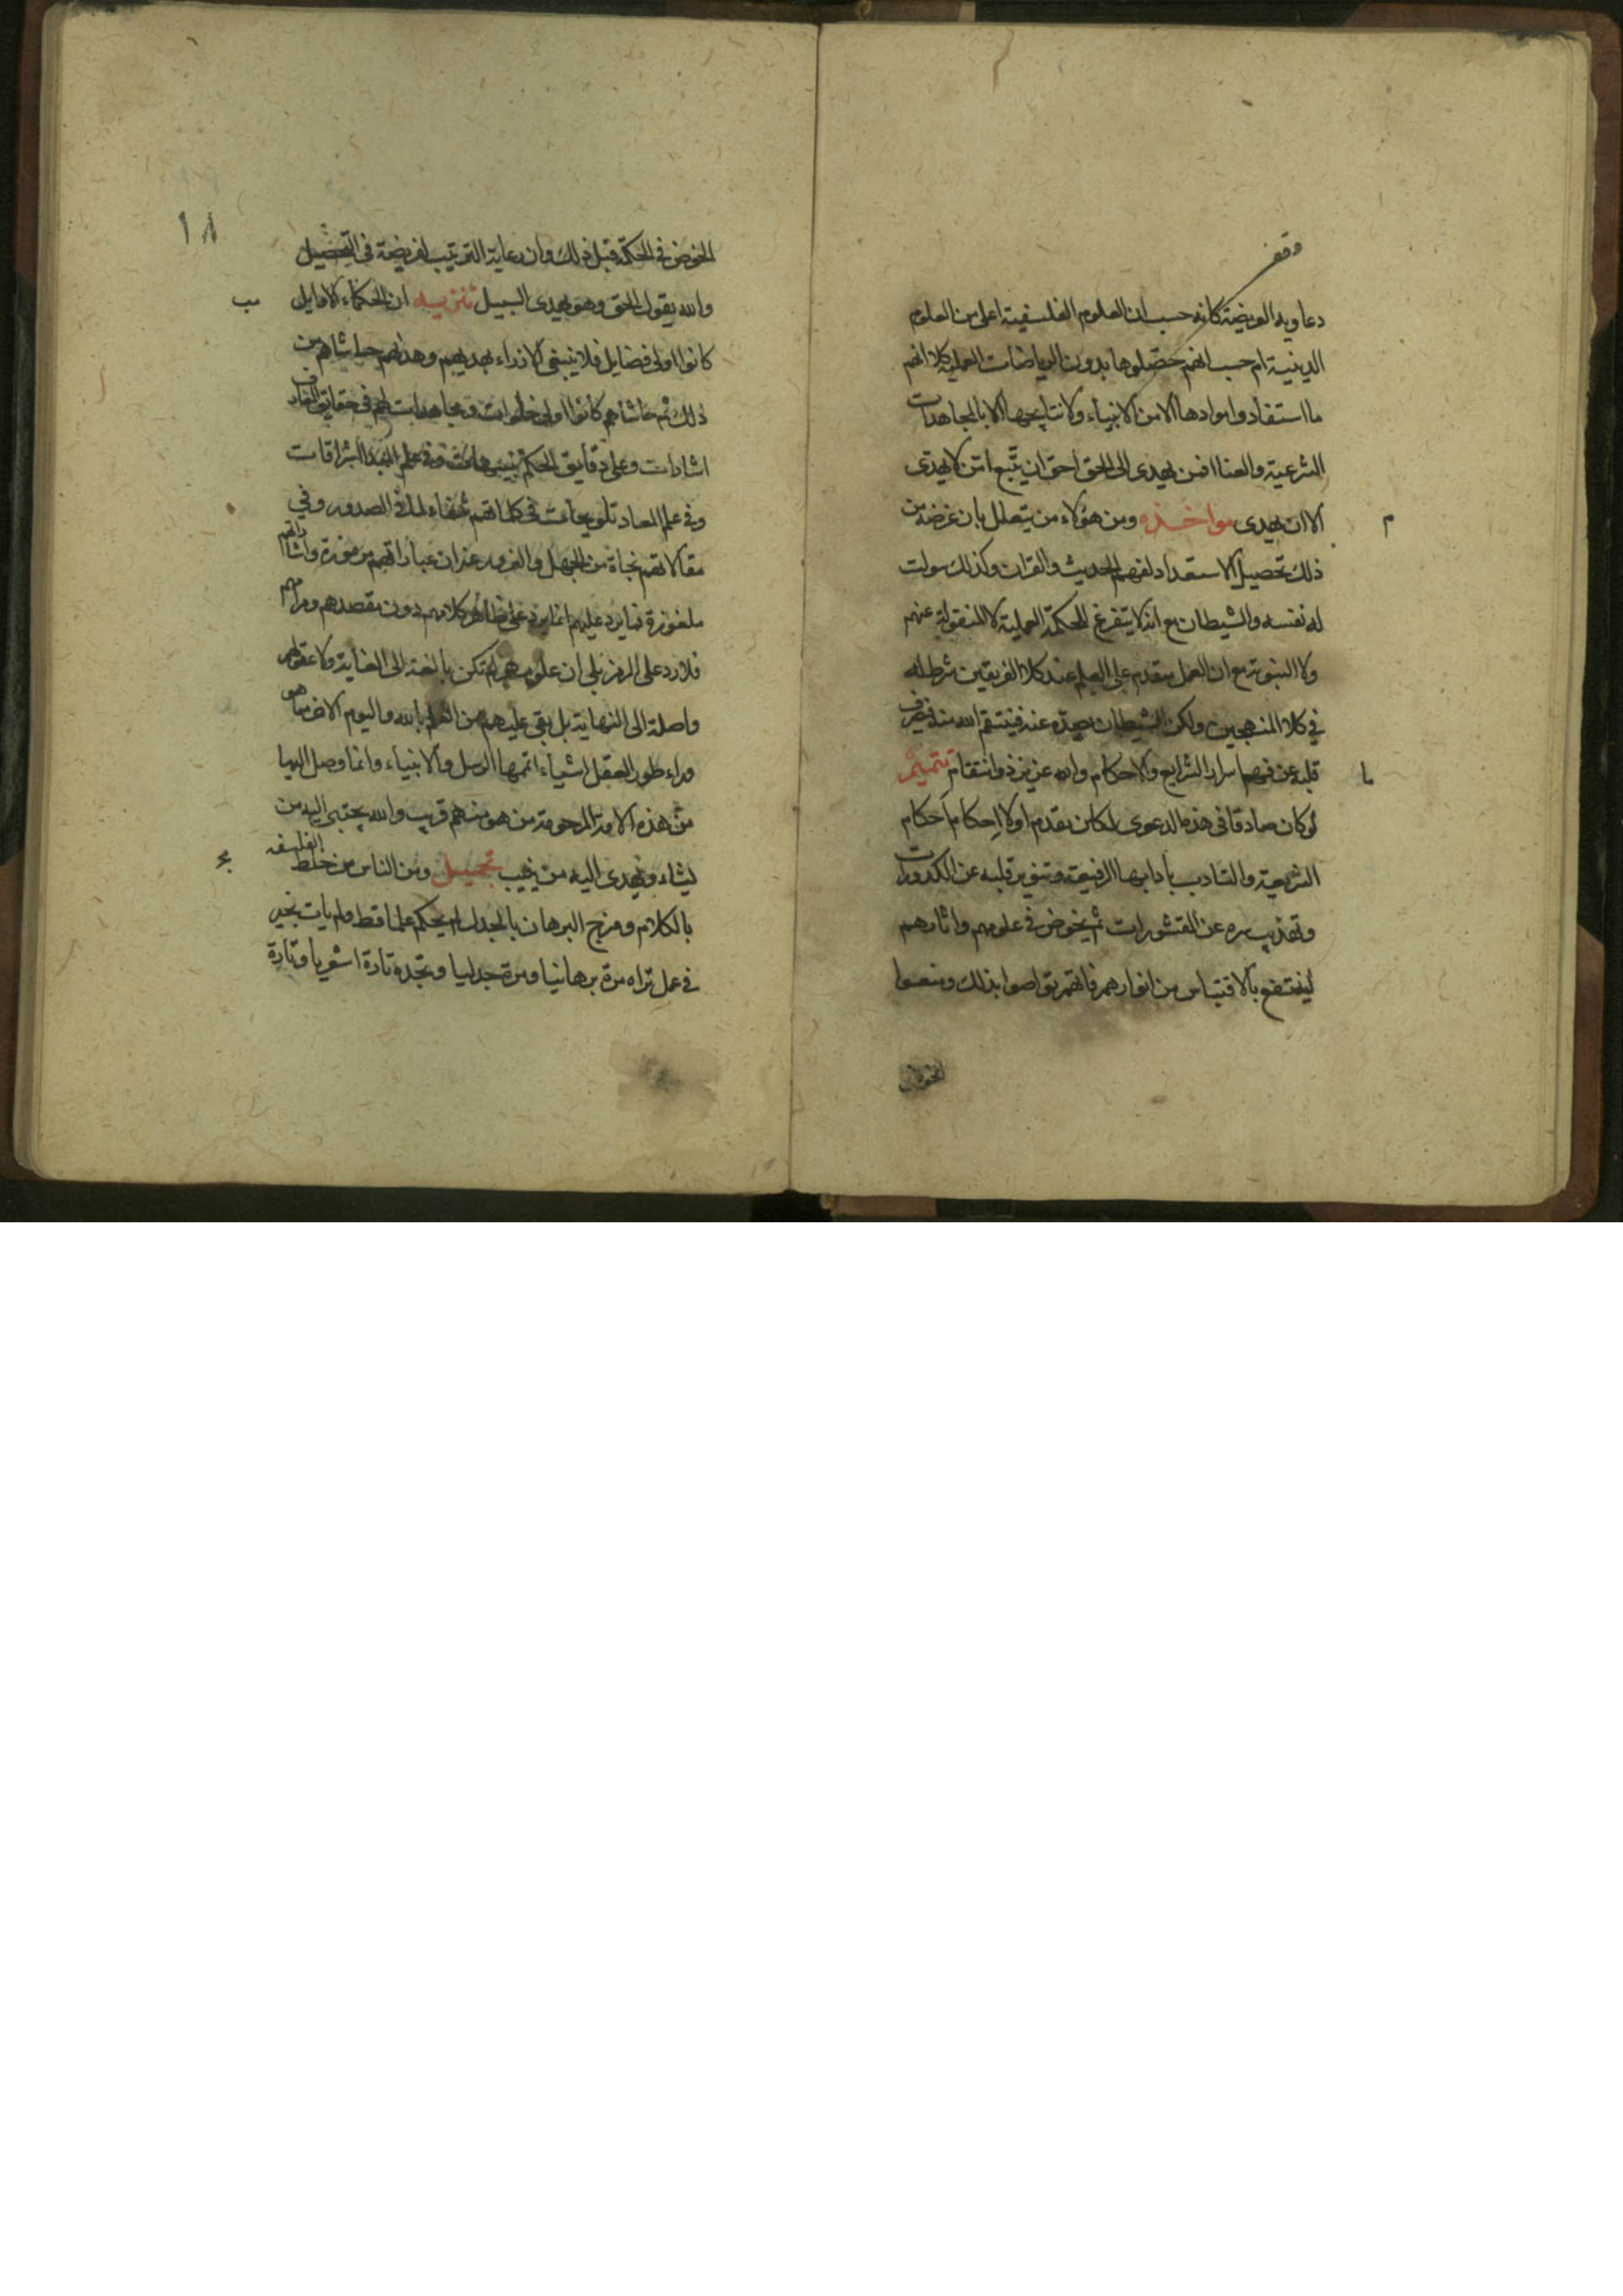 وقف
دعاويه العريضة كانه حسب ان العلوم الفلسفية اعلى من العلوم
الدينية ام حسب انهم حصّلوها بدون الرياضات العملية كلا انهم
ما استفادوا موادها الا من الانبياء ولا نتايجها الا بالمجاهدات
الشرعية والعنا افمن يهدى الى الحق احق ان يتّبع امّن لا يهدى
الا ان يهدى مواخذه ومن هؤلاء من يتعلل بان غرضه من
م
ذلك تحصيل الاستعداد لفهم الحديث والقران وكذلك سولت
له نفسه والشيطان مع انه لا يتفرغ للحكمة العملية لا المنقولة عنهم
ولا النبوية مع ان العمل متقدم على العلم عند كلا الفريقين شرط له
في كلا المنهجين ولكن الشيطان يصده عنه فينتقم الله منه فيصرف
قلبه عن فهم اسرار الشرايع والاحكام والله عزيز ذو انتقام تتميم
ما
لو كان صادقا في هذه الدعوى لكان يقدم اولا إحكام أحكام
الشريعة والتادب بادابها الرفيعة وتنوير قلبه عن الكدورات
وتهذيب سره عن القشورات ثم يخوض في علومهم واثارهم
لينتفع بالاقتباس من انوارهم فانهم تواصوا بذلك ومنعوا
الخوض
١٨
الخوض في الحكمة قبل ذلك وان رعاية الترتيب لفريضة في التحصيل
والله يقول الحق وهو يهدى السبيل تنزيه ان الحكماء الاوايل
مب
كانوا اولى فضايل فلا ينبغى الازراء بهديهم وهذيهم حاشاهم من
ذلك ثم حاشاهم كانوا اولى خلوات ومجاهدات لهم في حقايق المعارف
اشارات وعلى دقايق الحكم تنبيهات وفي علم المبدأ اشراقات
وفي علم المعاد تلويحات في كلماتهم شفاء لما في الصدور وفي
مقالاتهم نجاة من الجهل والغرور غير ان عباراتهم مرموزة واشاراتهم
ملغوزة فما يرد عليهم انما يرد على ظاهر كلامهم دون مقصدهم ومرامهم
فلا رد على الرمز بلى ان علومهم لم تكن بالغة الى الغاية ولا عقولهم
واصلة الى النهاية بل بقى عليهم من العلم بالله واليوم الاخر مما هو
وراء طور العقل اشياء اتمها الرسل والانبياء وانما وصل اليها
من هذه الامة المرحومة من هو منهم قريب والله يجتبى اليه من
يشاء ويهدى اليه من ينيب تجهيل ومن الناس من خلط الفلسفه
مج
بالكلام ومزج البرهان بالجدل لم يحكم علما قط ولم يات بخير
في عمل تراه مرة برهانيا ومرة جدليا وتجده تارة اشعريا وتارة